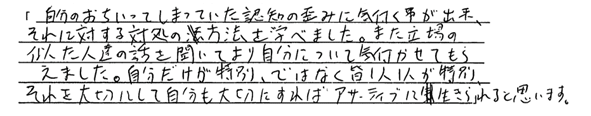 「自分のおちいってしまっていた認知の歪みに気付く事が出来、
それに対する対処の方法を学べました。また立場の
似た人達の話を聞いてより自分について気付かせてもら
えました。自分だけが特別、ではなく皆1人1人が特別、
それを大切にして自分も大切にすればアサーティブに生きられると思います。